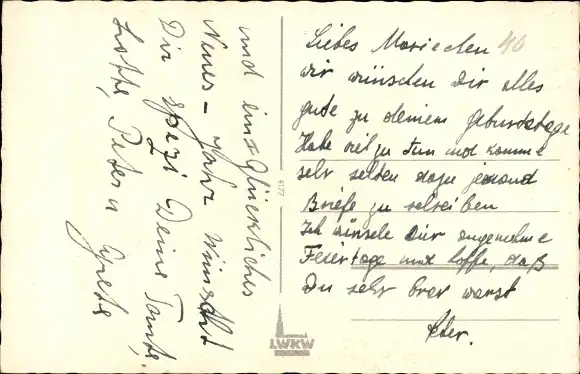 Liebes Mariechen 40
wir wünschen Dir alles
gute zu deinem Geburtstage
Habe viel zu tun und komme
sehr selten dazu jemand
Briefe zu schreiben
Ich wünsche Dir angenehme
Feiertage und hoffe, daß
Du sehr brav warst
Peter.
und ein glückliches
Neues-Jahr wünscht
Dir speziell Deine Tante,
Lotte, Peter u
4177
LWKW